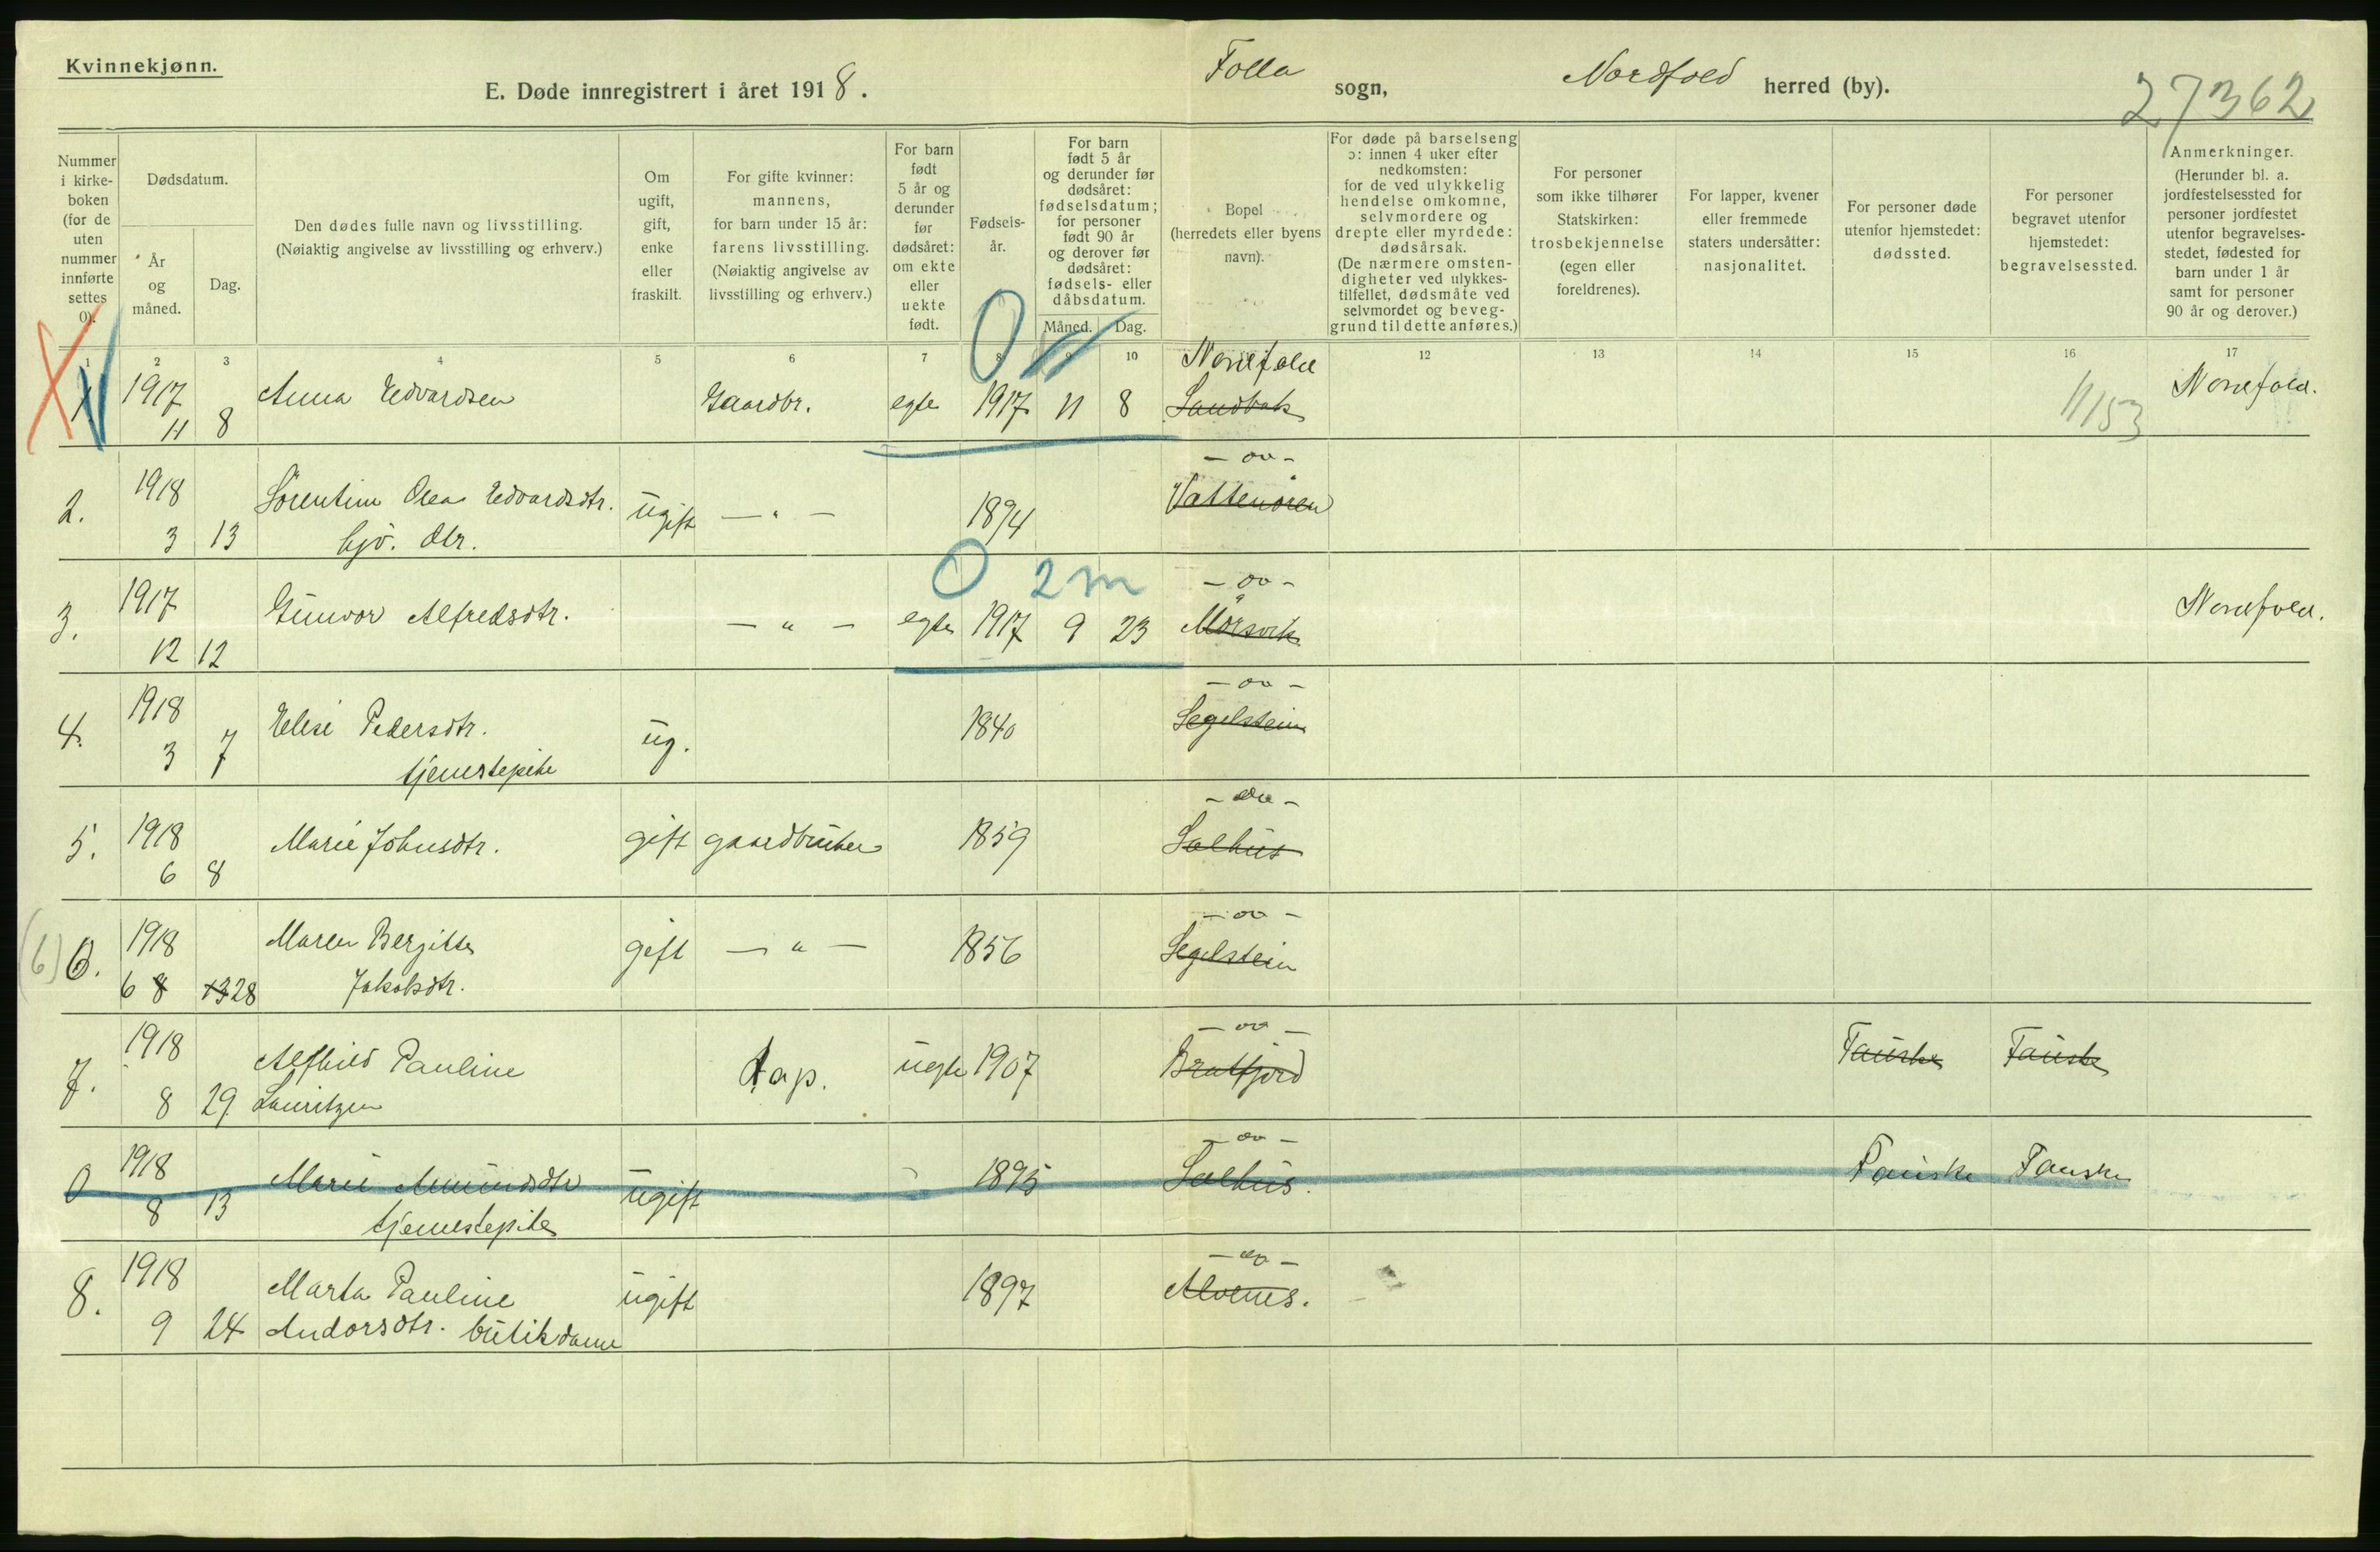 Kvinnekjønn.
E. Døde innregistrert i året 1918.
Folla sogn, Nordfold herred (by).
27362
Nummer i kirke-boken (for de uten nummer innførte settes 0).
Dødsdatum.
År og måned.
Dag.
Den dødes fulle navn og livsstilling.
(Nøiaktig angivelse av livsstilling og erhverv.)
Om ugift, gift, enke eller fraskilt.
For gifte kvinner: mannens, for barn under 15 år: farens livsstilling. (Nøiaktig angivelse av livsstilling og erhverv.)
For barn født 5 år og derunder før dødsåret: om ekte eller uekte født.
Fødsels-år.
For barn født 5 år og derunder før dødsåret: fødselsdatum; for personer født 90 år og derover før dødsåret: fødsels- eller dåbsdatum.
Måned. Dag.
Bopel (herredets eller byens navn).
For døde på barselseng ɔ: innen 4 uker efter nedkomsten: for de ved ulykkelig hendelse omkomne, selvmordere og drepte eller myrdede: dødsårsak. (De nærmere omsten-digheter ved ulykkes-tilfellet, dødsmåte ved selvmordet og beveg-grund til dette anføres.)
For personer som ikke tilhører Statskirken: trosbekjennelse (egen eller foreldrenes).
For lapper, kvener eller fremmede staters undersåtter: nasjonalitet.
For personer døde utenfor hjemstedet: dødssted.
For personer begravet utenfor hjemstedet: begravelsessted.
Anmerkninger. (Herunder bl. a. jordfestelsessted for personer jordfestet utenfor begravelses-stedet, fødested for barn under 1 år samt for personer 90 år og derover.)
1 2 3 4 5 6 7 8 9 10 12 13 14 15 16 17
1 1917 11 8 Anna Edvardsen Gaardbr. egte 1917 11 8 Nordfold Sandbak 11/153 Nordfold.
2. 1918 3 13 Sørentine Olea Edvardsdtr. ugift — " — 1894 — " —
hjv. dtr.
0 2 m
3. 1917 12 12 Gunvor Alfredsdtr. — " — egte 1917 9 23 — " — Mørsvik Nordfold.
4. 1918 3 7 Elise Pedersdtr. ug. 1840 — " — Segelstein
tjenestepike
5. 1918 6 8 Marie Johnsdtr. gift gaardbruker 1859 — " — Salhus
(6) 6. 1918 6 8 13 28 Maren Bergitte gift — " — 1856 — " — Segelstein
Jakobsdtr.
7. 1918 8 29. Alfhild Pauline Lap. uegte 1907 — " — Bratfjord Fauske Fauske
Lauritzen
0 1918 8 13 Marie Amundsdtr ugift 1895 — " — Salhus. Fauske Fauske
tjenestepike
8. 1918 9 24 Marta Pauline ugift 1897 — " — Alvenes.
Andorsdtr. butikdame